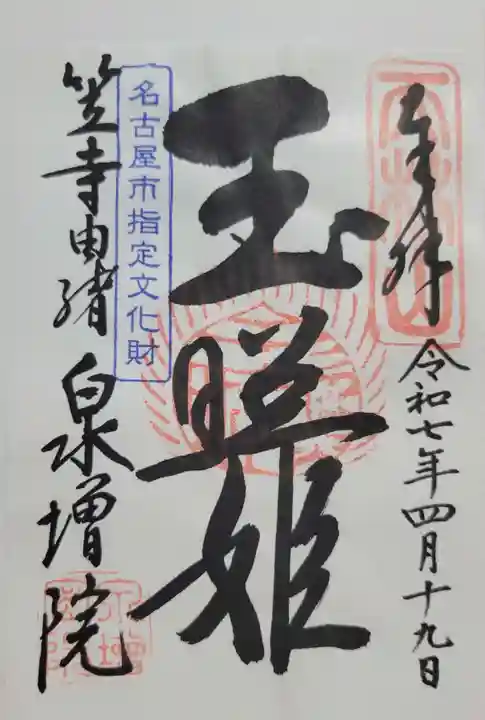 奉拝
令和七年四月十九日
玉照姫
名古屋市指定文化財
笠寺由緒 泉増院